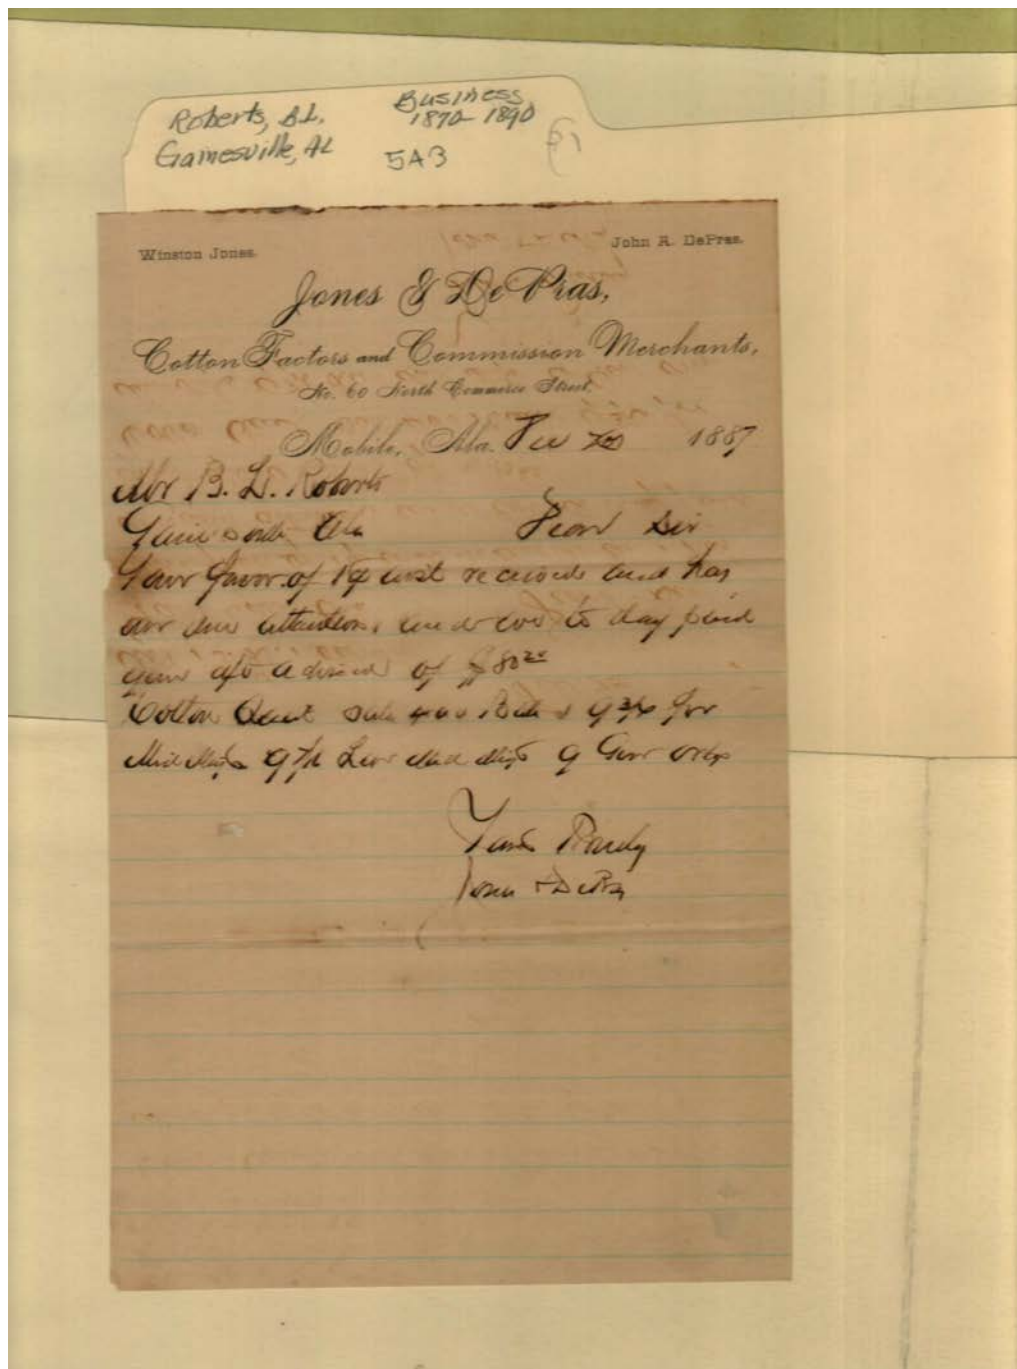 Roberts, B.L. Business
1870-1890
Gainesville, AL 5A3
Winston Jones. John R. DePras.
Jones & De Pras,
Cotton Factors and Commission Merchants,
No. 60 North Commerce Street.
Mobile, Ala. 1887
Mr B. L. Roberts
Gainesville Ala Dear Sir
Your favor of 19 inst received and has
our due attention. to day paid
your of $80
Cotton Quiet sale 400 Bales 9 3/8 for
Midling Low 9 Good Ordy
Yours Truly
Jones + DePras